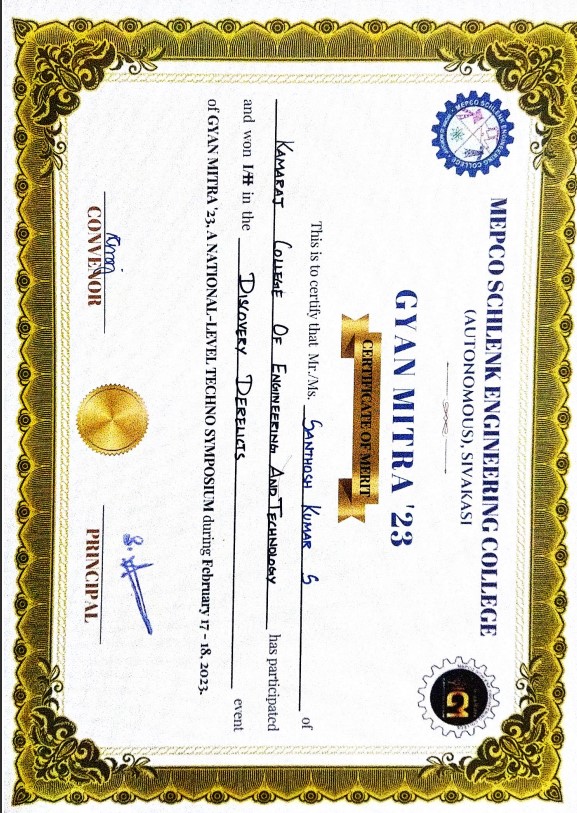 MEPCO SCHLENK ENGINEERING COLLEGE
(AUTONOMOUS), SIVAKASI
GYAN MITRA '23
CERTIFICATE OF MERIT
This is to certify that Mr./Ms. SANTHOSH KUMAR S of
KAMARAJ COLLEGE OF ENGINEERING AND TECHNOLOGY has participated
and won I/II in the DISCOVERY DERELICTS event
of GYAN MITRA '23, A NATIONAL-LEVEL TECHNO SYMPOSIUM during February 17 - 18, 2023.
CONVENOR
PRINCIPAL